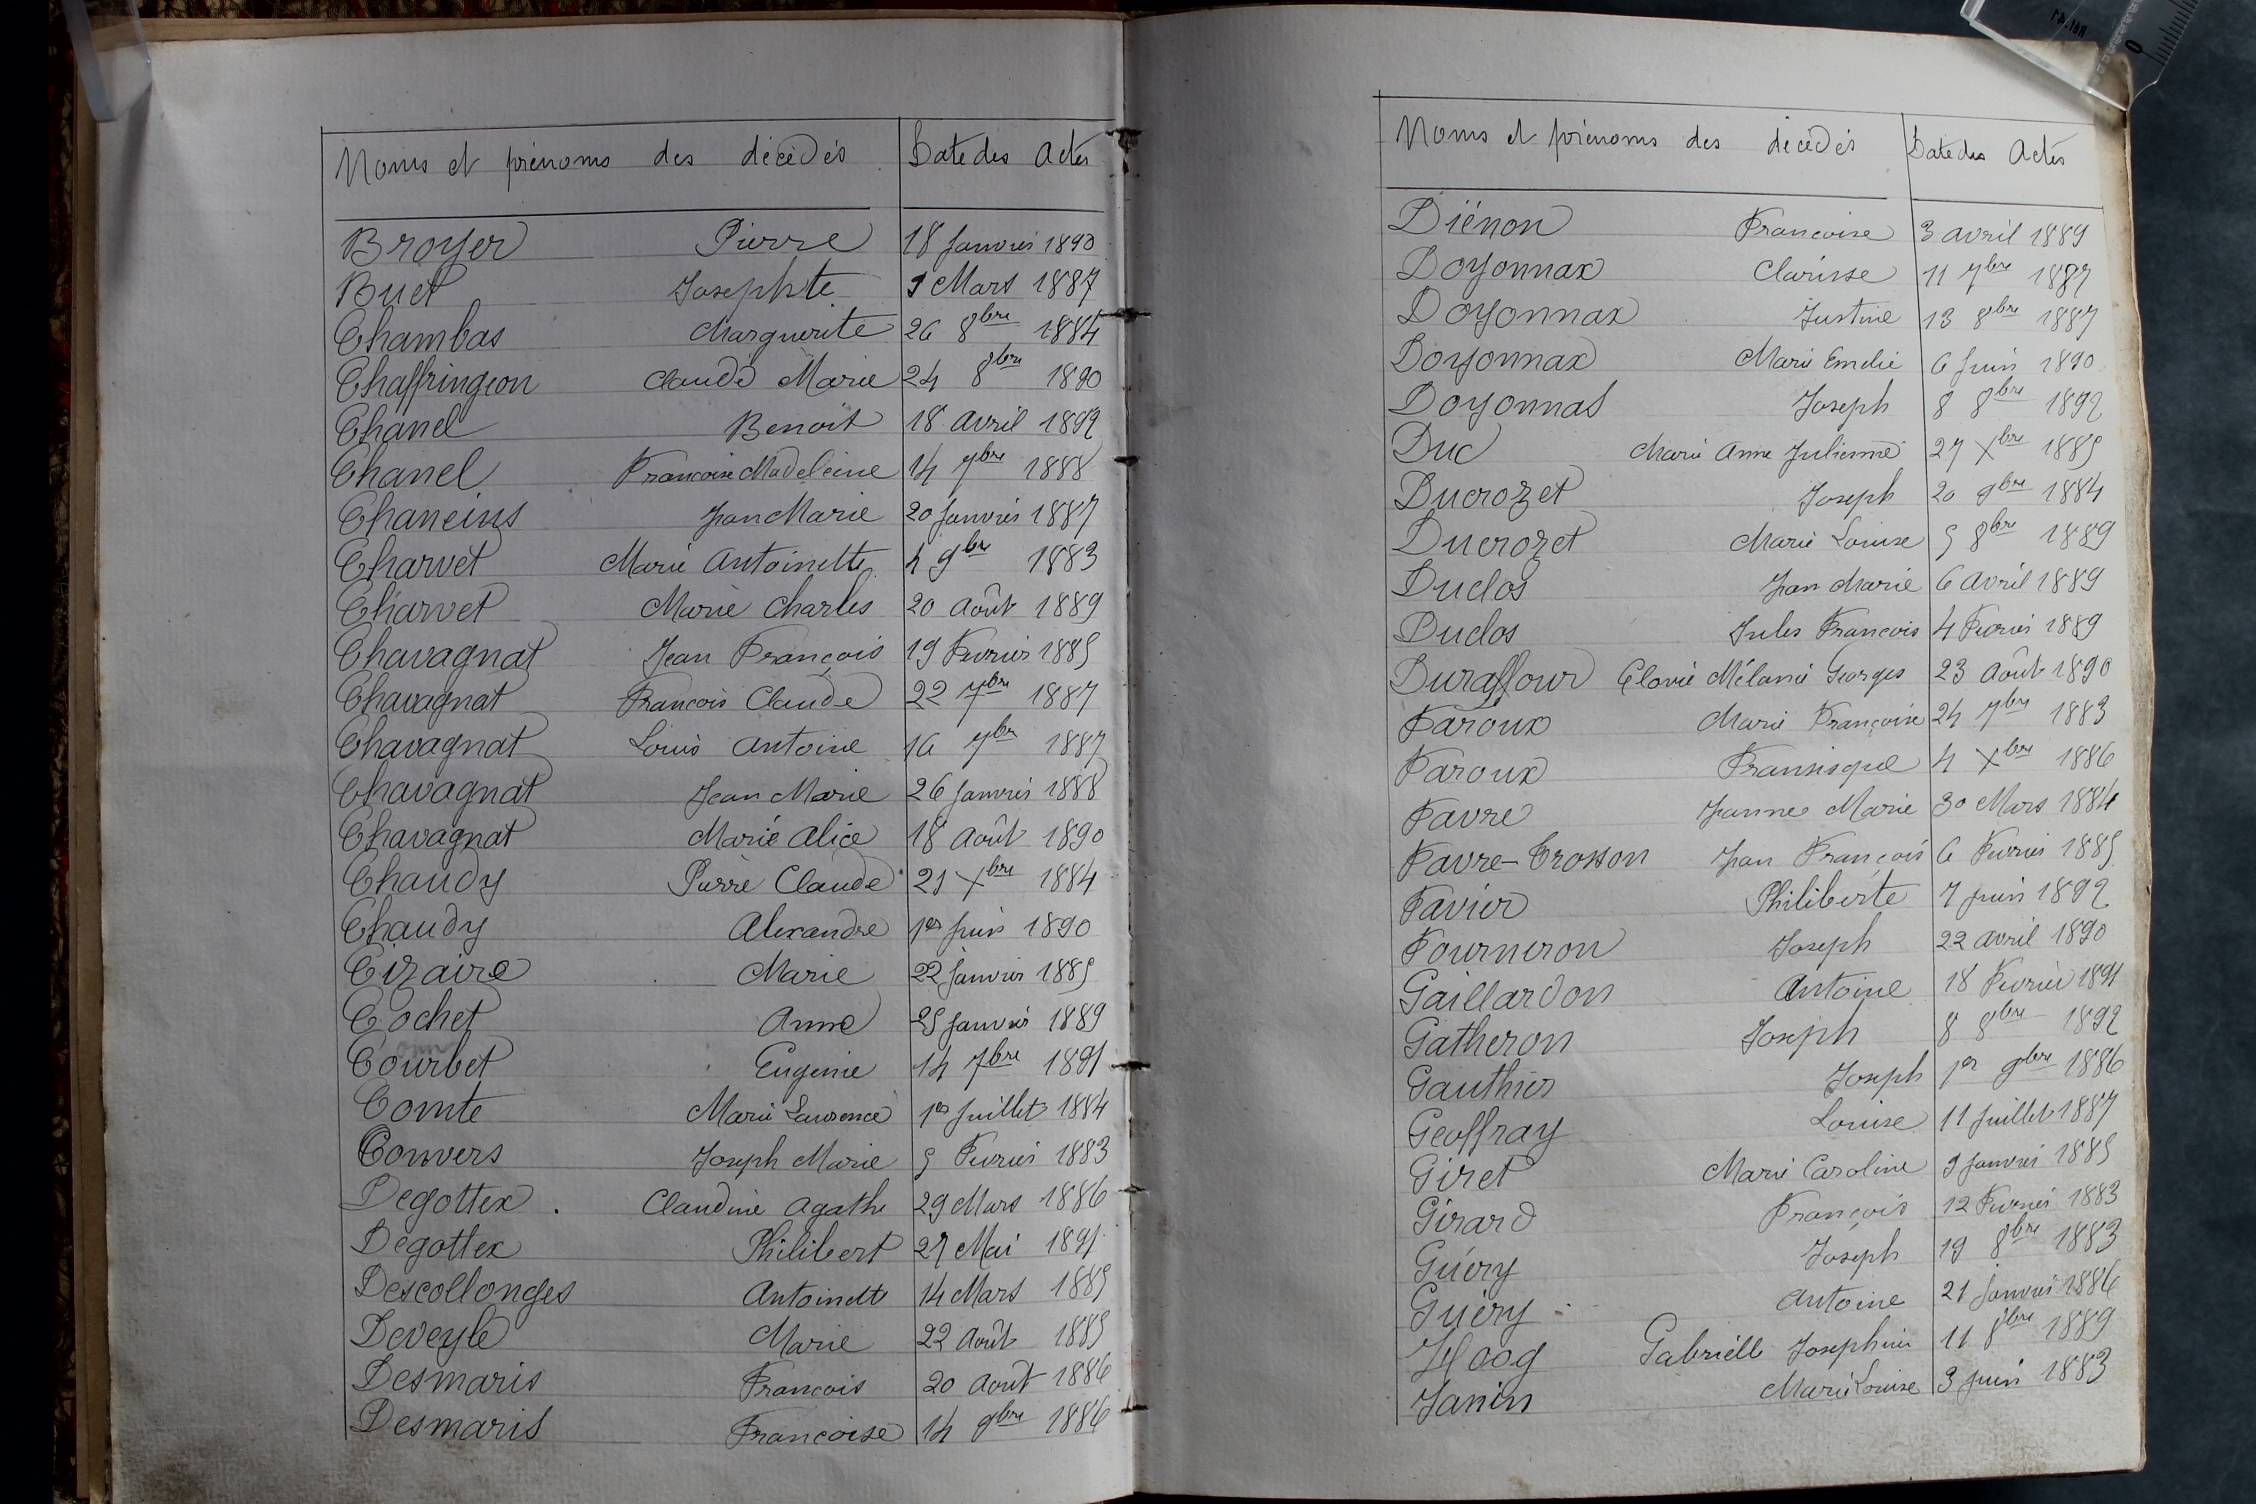 Noms et prénoms des décédés Date des Actes
Broyer Pierre 18 Janvier 1890
Buet Josephte 9 Mars 1887
Chambas Marguerite 26 8bre 1884
Chaffringeon Claude Marie 24 8bre 1890
Chanel Benoit 18 Avril 1892
Chanel Françoise Madeleine 14 7bre 1888
Chaneins Jean Marie 20 Janvier 1887
Charvet Marie Antoinette 4 9bre 1883
Charvet Marie Charles 20 Août 1889
Chavagnat Jean François 19 Fevrier 1885
Chavagnat François Claude 22 7bre 1887
Chavagnat Louis Antoine 16 7bre 1887
Chavagnat Jean Marie 26 Janvier 1888
Chavagnat Marie Alice 18 Août 1890
Chaudy Pierre Claude 21 Xbre 1884
Chaudy Alexandre 1er Juin 1890
Cizaire Marie 22 Janvier 1885
Cochet Anne 25 Janvier 1889
Courbet Eugenie 14 7bre 1891
Comte Marie Laurence 1er Juillet 1884
Convers Joseph Marie 5 Fevrier 1883
Degottex Claudine Agathe 29 Mars 1886
Degottex Philibert 27 Mai 1891
Descollonges Antoinette 14 Mars 1885
Deveyle Marie 22 Août 1885
Desmaris François 20 Août 1886
Desmaris Françoise 14 9bre 1886
Noms et prénoms des décédés Date des Actes
Diénon Françoise 3 Avril 1889
Doyonnax Clarisse 11 7bre 1887
Doyonnax Justine 13 8bre 1887
Doyonnax Marie Emelie 6 Juin 1890
Doyonnas Joseph 8 8bre 1892
Duc Marie Anne Julienne 27 Xbre 1885
Ducrozet Joseph 20 9bre 1884
Ducrozet Marie Louise 5 8bre 1889
Duclos Jean Marie 6 Avril 1889
Duclos Jules François 4 Fevrier 1889
Duraffour Clovie Mélanie Georges 23 Août 1890
Faroux Marie Françoise 24 7bre 1883
Faroux Fransisque 4 Xbre 1886
Favre Jeanne Marie 30 Mars 1884
Favre-Trosson Jean François 6 Fevrier 1885
Favier Philiberte 7 Juin 1892
Fourneron Joseph 22 Avril 1890
Gaillardon Antoine 18 Fevrier 1891
Gatheron Joseph 8 8bre 1892
Gauthier Joseph 1er 9bre 1886
Geoffray Louise 11 Juillet 1887
Giret Marie Caroline 9 Janvier 1885
Girard François 12 Fevrier 1883
Guéry Joseph 19 8bre 1883
Guéry Antoine 21 Janvier 1886
Hoog Gabrielle Josephine 11 8bre 1889
Janin Marie Louise 3 Juin 1883